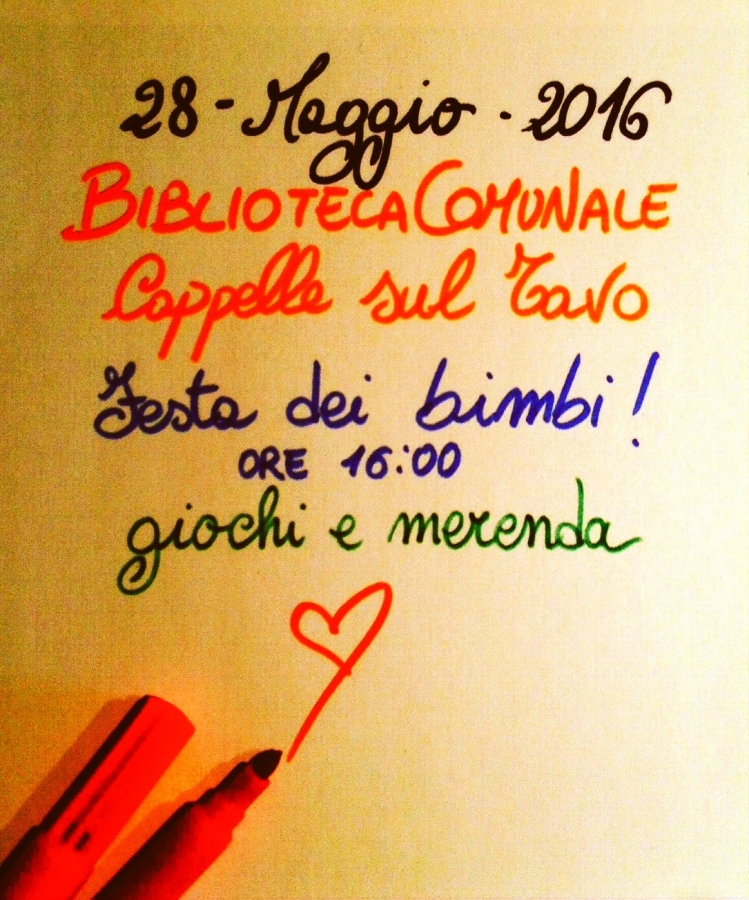 28-Maggio.2016
BIBLIOTECA COMUNALE
Cappelle sul Tavo
Festa dei bimbi!
ORE 16:00
giochi e merenda